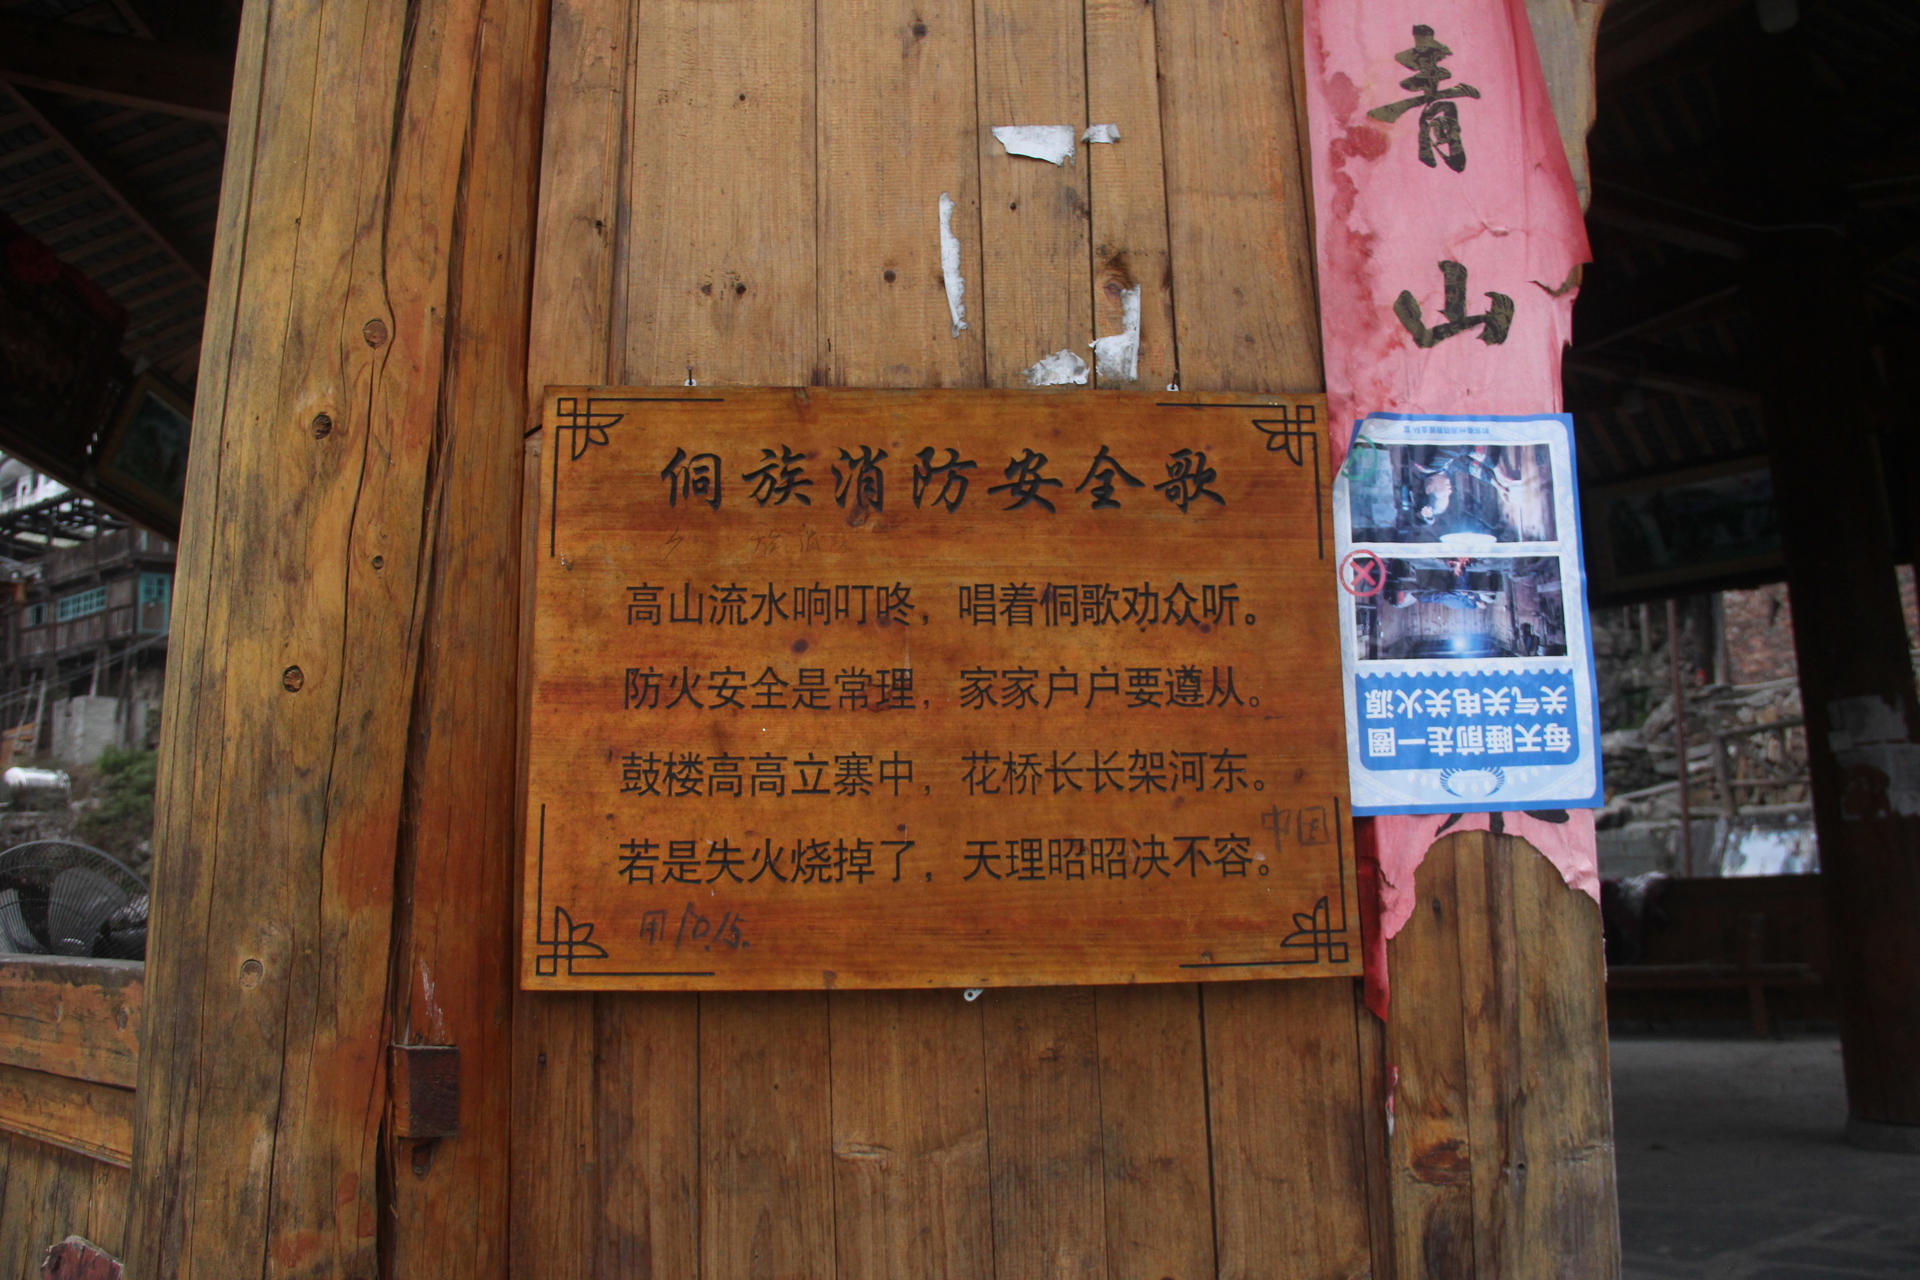 侗族消防安全歌
高山流水响叮咚，唱着侗歌劝众听。
防火安全是常理，家家户户要遵从。
鼓楼高高立寨中，花桥长长架河东。
若是失火烧掉了，天理昭昭决不容。
中国
用10.15.
青山
每天睡前走一圈
关气关电关火源